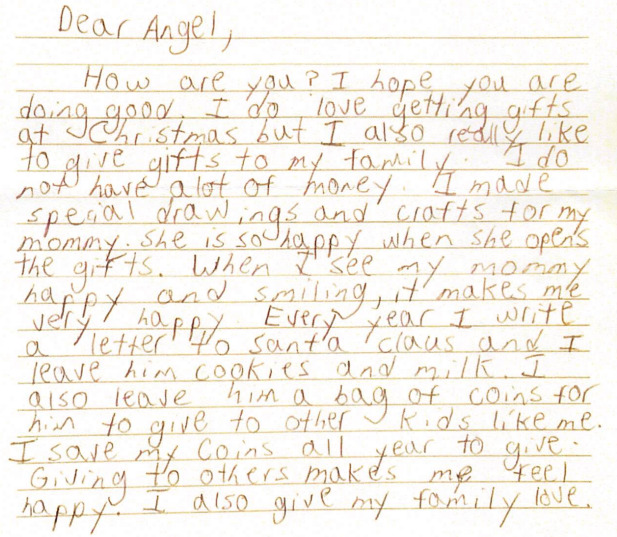 Dear Angel,
How are you? I hope you are
doing good. I do love getting gifts
at Christmas but I also really like
to give gifts to my family. I do
not have alot of money. I made
special drawings and crafts for my
mommy. She is so happy when she opens
the gifts. When I see my mommy
happy and smiling, it makes me
very happy. Every year I write
a letter to santa claus and I
leave him cookies and milk. I
also leave him a bag of coins for
him to give to other kids like me.
I save my coins all year to give.
Giving to others makes me feel
happy. I also give my family love.